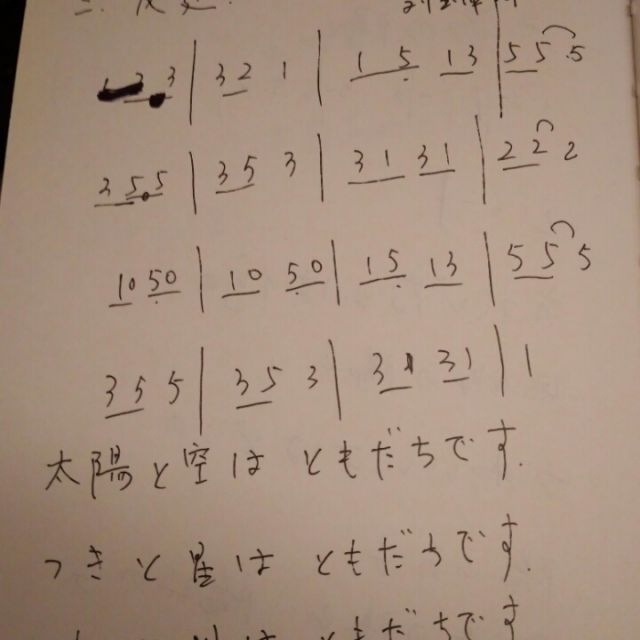 3 | 3 2 1 | 1 5 1 3 | 5 5 5
3 5 5 | 3 5 3 | 3 1 3 1 | 2 2 2
1 0 5 0 | 1 0 5 0 | 1 5 1 3 | 5 5 5
3 5 5 | 3 5 3 | 3 1 3 1 | 1
太陽と空は ともだちです.
つきと星は ともだちです.
は ともだちです